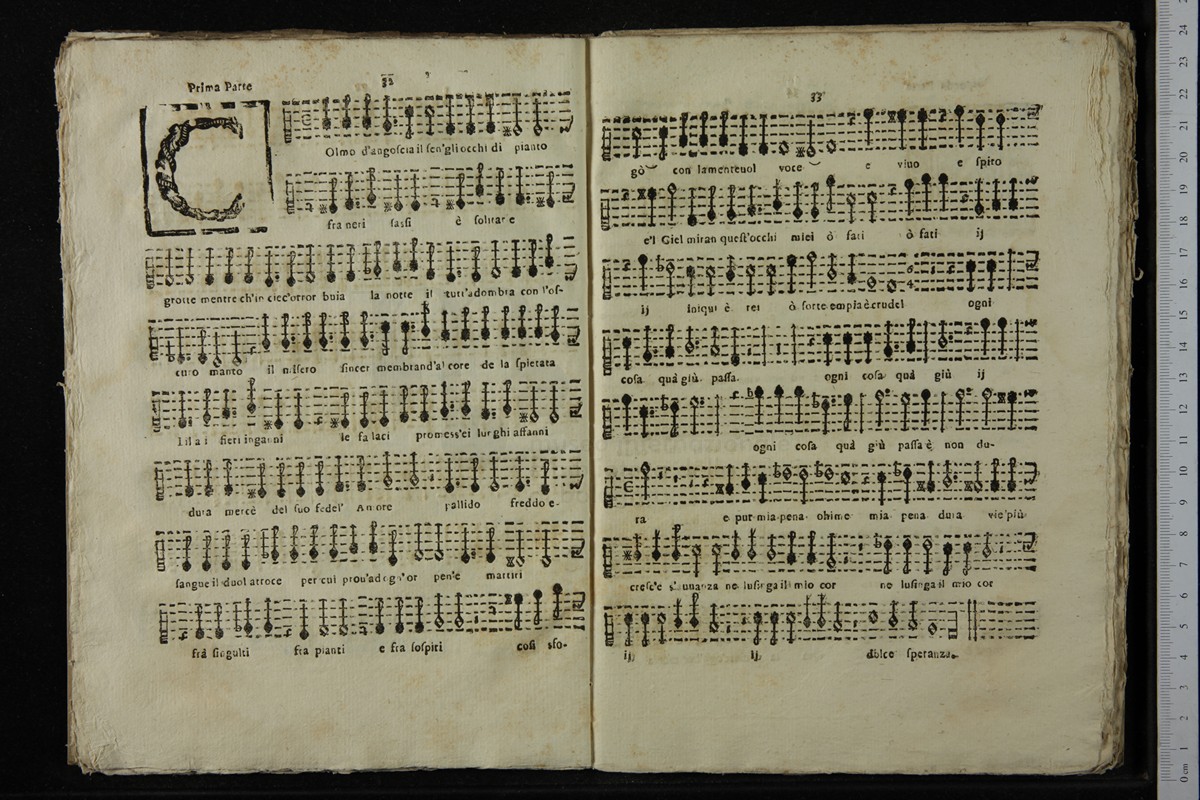 Prima Parte
32
COlmo d'angoscia il sen'gli occhi di pianto
fra neri sassi è solitar e
grotte mentre ch'in ciec'orror buia la notte il tutt'adombra con l'of-
curo manto il misero sincer membrand'al core de la spietata
fieri inganni le falaci promess'ei lunghi affanni
dura mercè del suo fedel' Amore pallido freddo e-
sangue il duol atroce per cui prou'ad ogn'or pen'e martiri
frà singulti fra pianti e fra sospiri cosi sfo-
33
gò con lamenteuol voce e viuo e spiro
e'l Ciel miran quest'occhi miei ò fati ò fati ij
ij iniqui è rei ò sorte empia è crudel ogni
cosa quà giù passa. ogni cosa quà giù ij
ogni cosa quà giù passa è non du-
ra e pur mia pena ohime mia pena dura vie più
cresc'e s'auanza ne lusinga il mio cor ne lusinga il mio cor
ij ij dolce speranza.